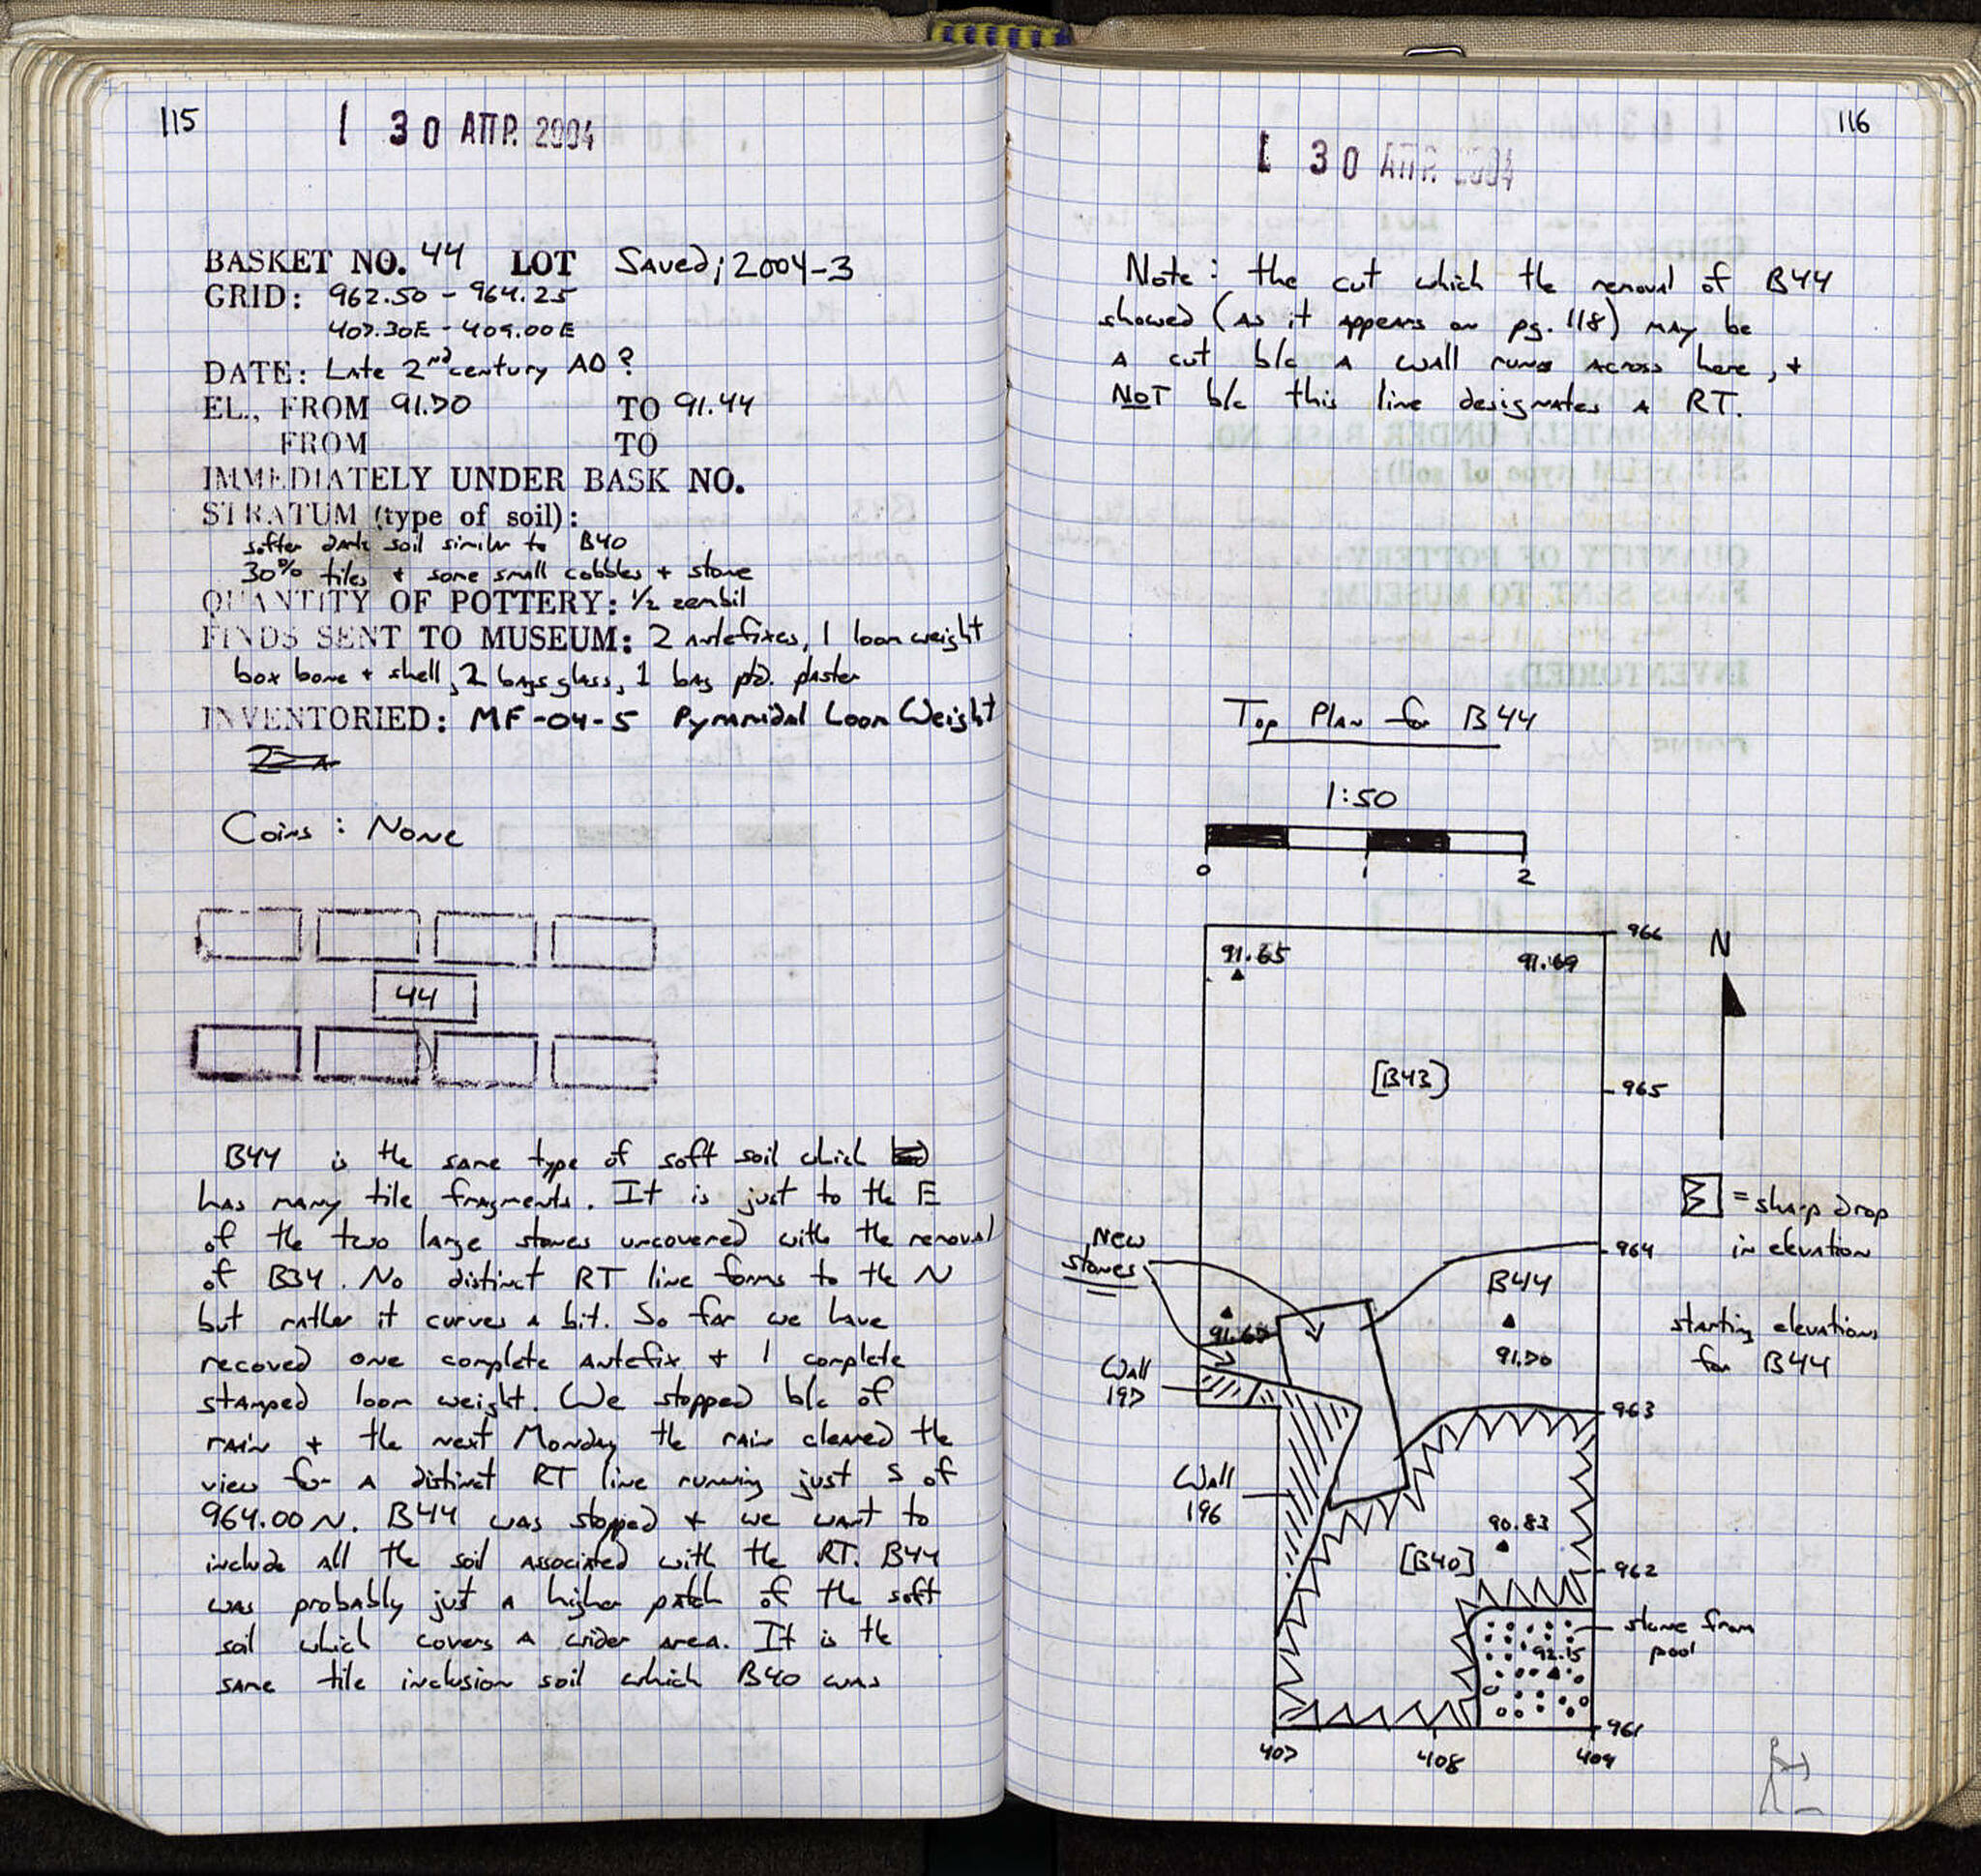 115
1 30 ΑΠΡ. 2004
BASKET NO. 44 LOT Saved; 2004-3
GRID: 962.50 - 964.25
407.30E - 409.00E
DATE: Late 2nd century AD?
EL., FROM 91.70 TO 91.44
FROM TO
IMMEDIATELY UNDER BASK NO.
STRATUM (type of soil):
softer dark soil similar to B40
30% tiles + some small cobbles + stone
QUANTITY OF POTTERY: 1/2 zembil
FINDS SENT TO MUSEUM: 2 antefixes, 1 loom weight
box bone + shell, 2 bags glass, 1 bag ptd. plaster
INVENTORIED: MF-04-5 Pyramidal Loom Weight
Coins: None
44
B44 is the same type of soft soil which
has many tile fragments. It is just to the E
of the two large stones uncovered with the removal
of B34. No distinct RT line forms to the N
but rather it curves a bit. So far we have
recoved one complete antefix + 1 complete
stamped loom weight. We stopped b/c of
rain + the next Monday the rain cleared the
view for a distinct RT line running just S of
964.00 N. B44 was stopped + we want to
include all the soil associated with the RT. B44
was probably just a higher patch of the soft
soil which covers a wider area. It is the
same tile inclusion soil which B40 was
116
1 30 ΑΠΡ. 2004
Note: the cut which the removal of B44
showed (as it appears on pg. 118) may be
a cut b/c a wall runs across here, +
NOT b/c this line designates a RT.
Top Plan for B44
1:50
0 1 2
966
91.65 91.69
N
[B43]
965
= sharp drop
in elevation
New
stones
964
B44
91.70
starting elevations
for B44
Wall
197
963
Wall
196
90.83
[B40]
962
stone from
pool
92.15
961
407 408 409